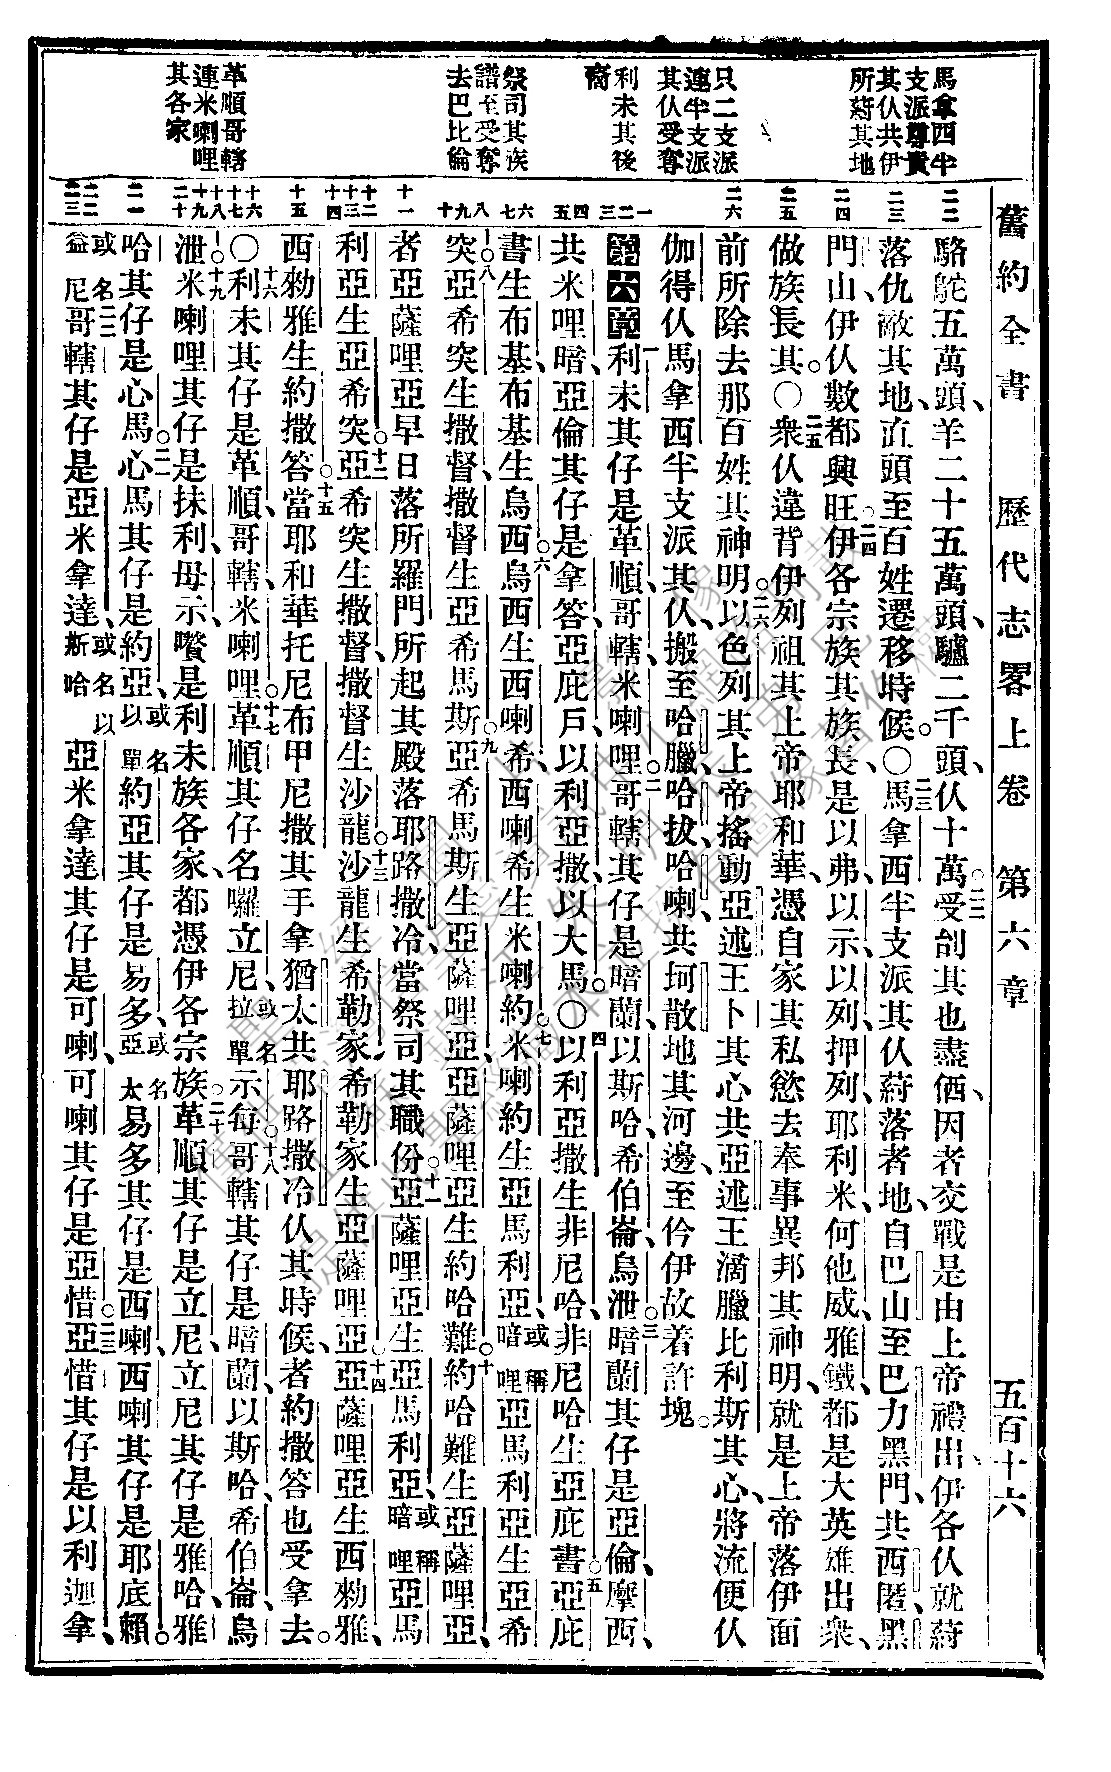 舊約全書 歷代志畧上卷 第六章 五百十六
馬拿西半
支派尊貴
其仈共伊
所蒔其地
只二支派
連半支派
其仈受奪
利未其後
裔
祭司其族
譜至受奪
去巴比倫
革順哥轄
連米喇哩
其各家
二二
二三
二四
二五
二六
一二三
四五
六七
八九十
十一
十二十三十四
十五
十六十七十八十九二十
二一
二二二三
駱鴕五萬頭、羊二十五萬頭、驢二千頭、仈十萬。二二受創其也盡価、因者交戰是由上帝禮出、伊各仈就蒔
落仇敵其地、直頭至百姓遷移時候。〇二三馬拿西半支派其仈蒔落者地、自巴山至巴力黑門、共西匿、黑
門山、伊仈數都興旺。二四伊各宗族其族長、是以弗、以示、以列、押列、耶利米、何他威、雅鐵、都是大英雄出衆、
做族長其。〇二五衆仈違背伊列祖其上帝耶和華、憑自家其私慾去奉事異邦其神明、就是上帝落伊面
前所除去那百姓其神明。二六以色列其上帝搖動亞述王卜其心、共亞述王滴臘比利斯其心、將流便仈
伽得仈馬拿西半支派其仈、搬至哈臘、哈拔、哈喇、共坷散地其河邊、至仱伊故着許塊。
第六章一利未其仔是革順、哥轄、米喇哩。二哥轄其仔是暗蘭、以斯哈、希伯崙、烏泄。三暗蘭其仔是亞倫、摩西、
共米哩暗、亞倫其仔是拿答、亞庇戶、以利亞撒、以大馬。〇四以利亞撒生非尼哈、非尼哈生亞庇書、五亞庇
書生布基、布基生烏西、六烏西生西喇希、西喇希生米喇約、七米喇約生亞馬利亞、或稱暗哩亞馬利亞生亞希
突、八亞希突生撒督、撒督生亞希馬斯、九亞希馬斯生亞薩哩亞、亞薩哩亞生約哈難、十約哈難生亞薩哩亞、
者亞薩哩亞早日落所羅門所起其殿落耶路撒冷、當祭司其職份。十一亞薩哩亞生亞馬利亞、或稱暗哩亞馬
利亞生亞希突、十二亞希突生撒督、撒督生沙龍、十三沙龍生希勒家、希勒家生亞薩哩亞、十四亞薩哩亞生西勑雅、
西勑雅生約撒答、十五當耶和華托尼布甲尼撒其手拿猶太共耶路撒冷仈其時候、者約撒答也受拿去。
〇十六利未其仔是革順、哥轄、米喇哩。十七革順其仔名囉立尼、或名拉單示每。十八哥轄其仔是暗蘭、以斯哈、希伯崙、烏
泄。十九米喇哩其仔是抹利、母示、囋是利未族各家、都憑伊各宗族。二十革順其仔是立尼、立尼其仔是雅哈、雅
哈其仔是心馬、二一心馬其仔是約亞、或名以單約亞其仔是易多、或名亞太易多其仔是西喇、西喇其仔是耶底賴。
二二哥轄其仔是亞米拿達、或名以斯哈亞米拿達其仔是可喇、可喇其仔是亞惜、二三亞惜其仔是以利迦拿、